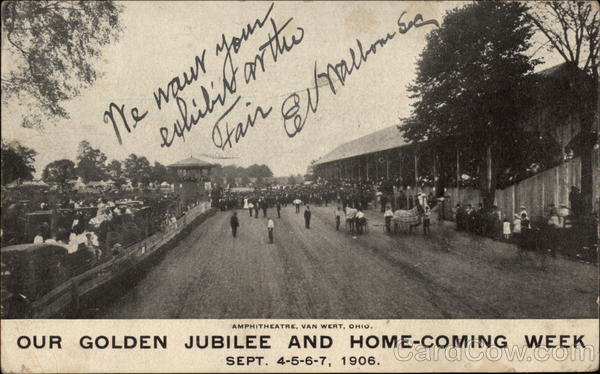 We want your
exhibit at the
Fair E V Walborn Secy
AMPHITHEATRE, VAN WERT, OHIO.
OUR GOLDEN JUBILEE AND HOME-COMING WEEK
SEPT. 4-5-6-7, 1906.
CardCow.com